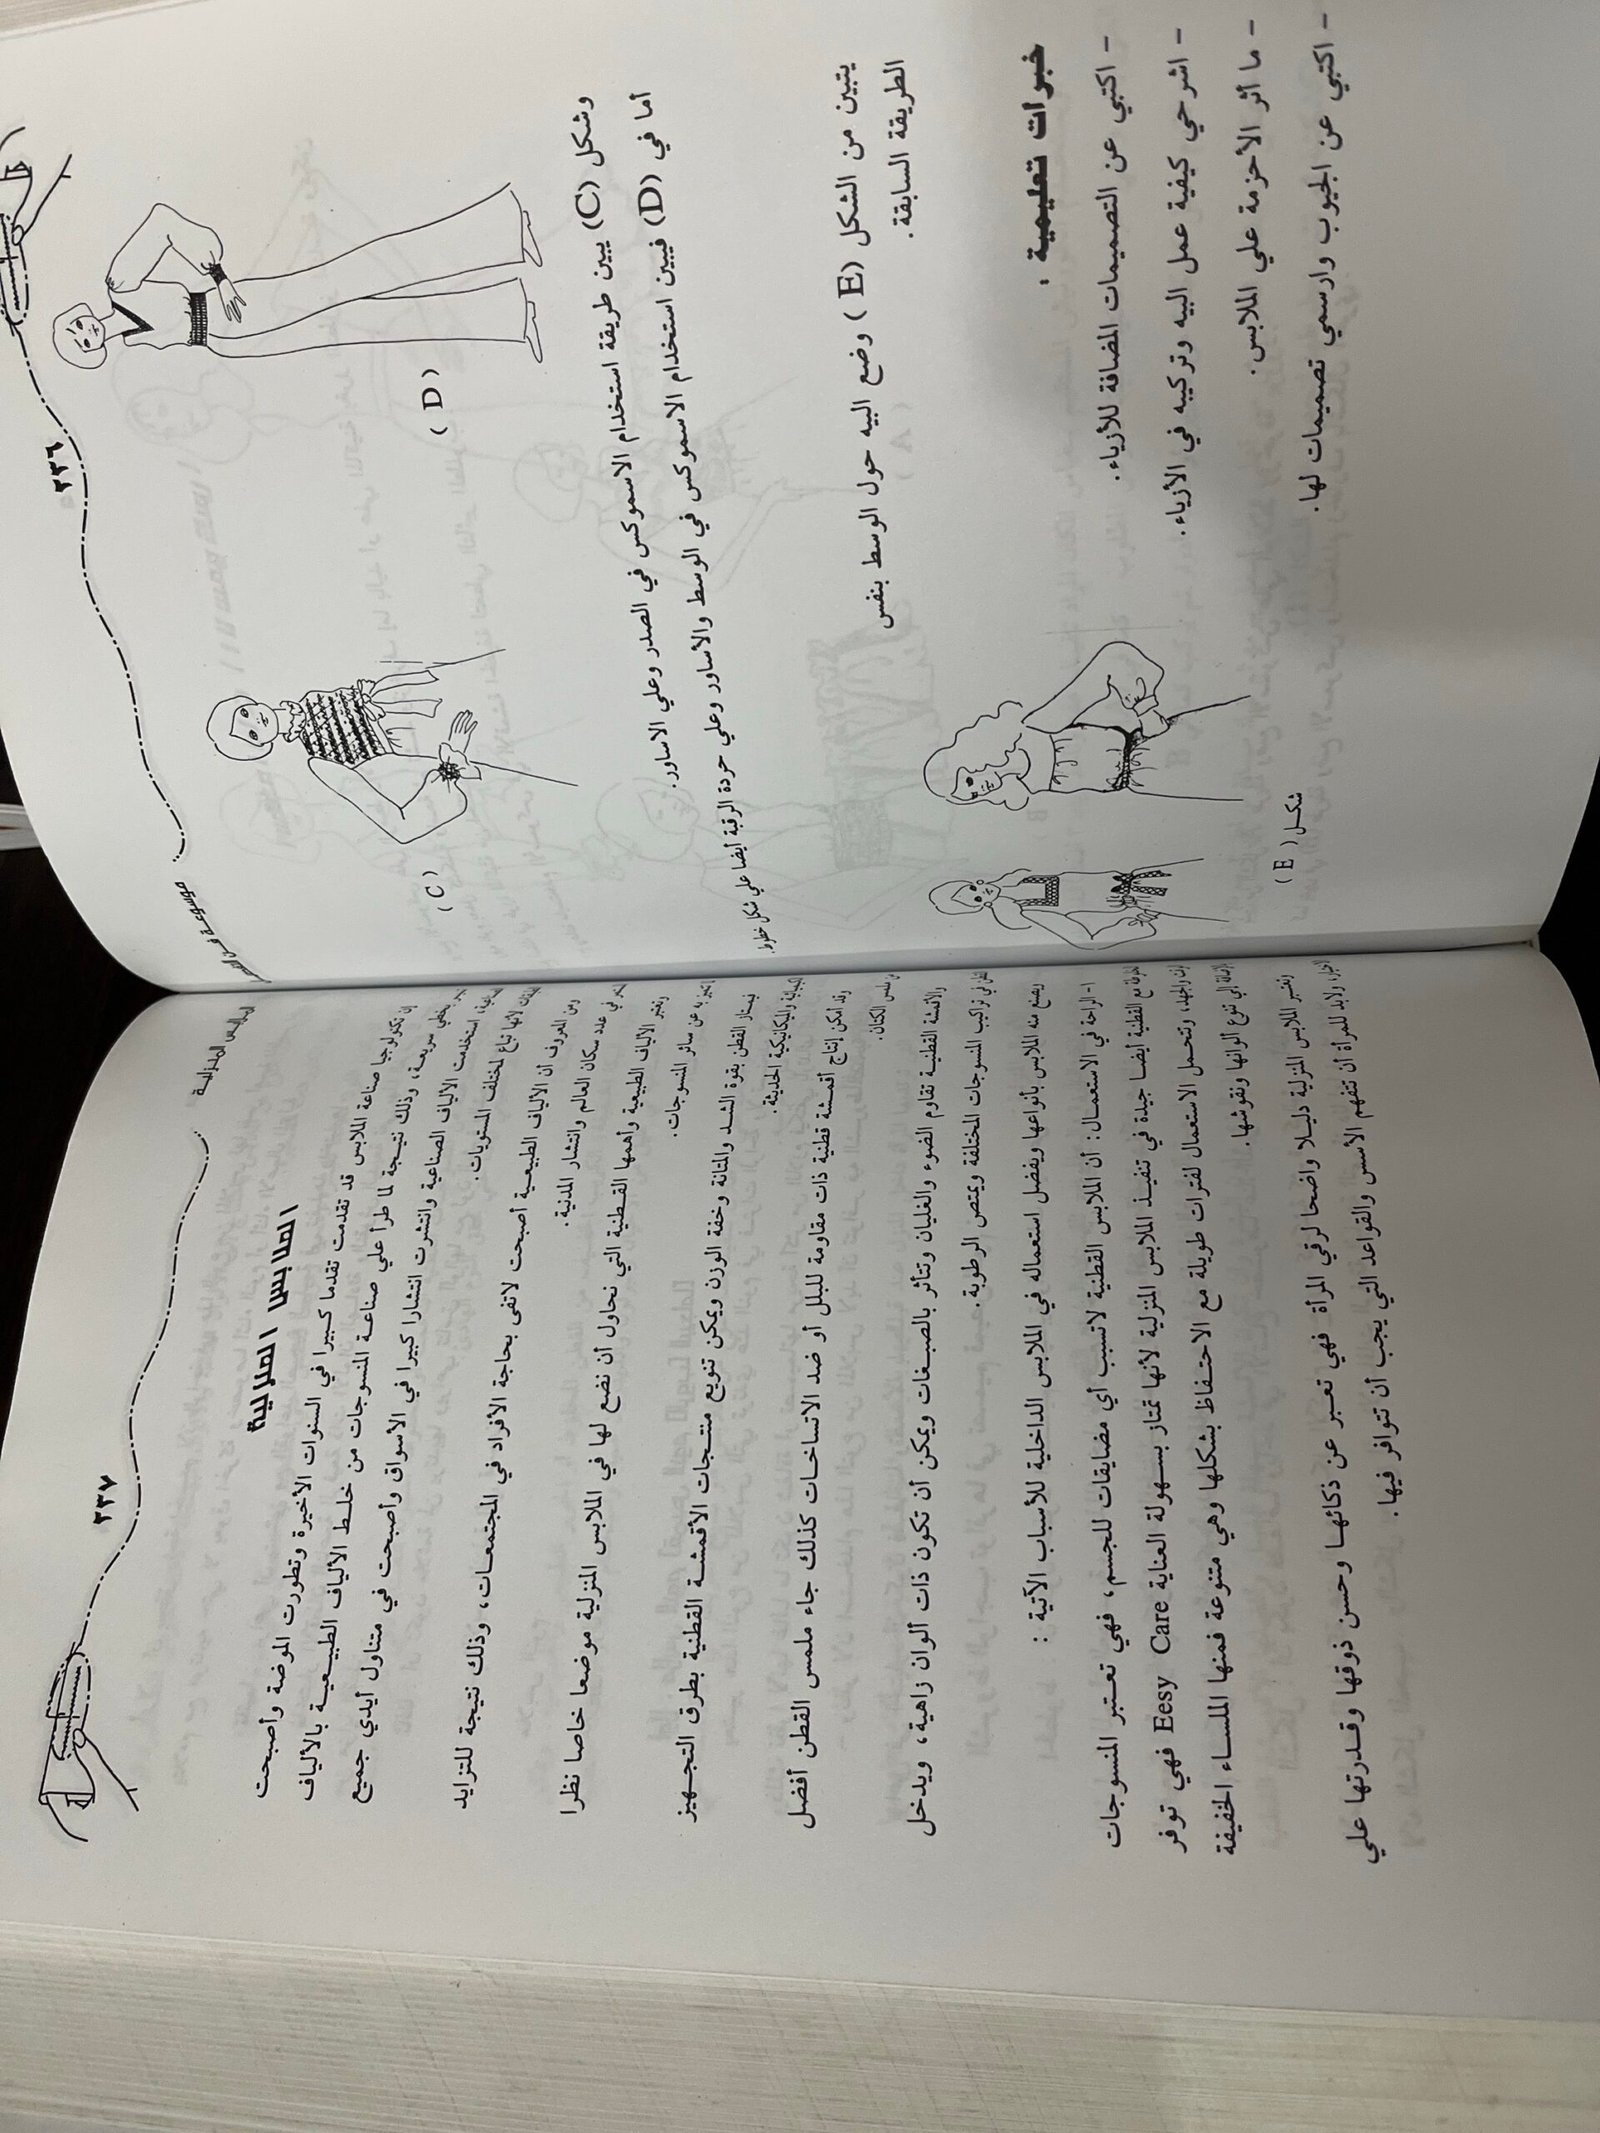 ٢٣٦
موسوعة فن
( D )
( C )
وشكل (C) يبين طريقة استخدام الاسموكس في الصدر وعلي الاساور.
أما في (D) فيبين استخدام الاسموكس في الوسط والأساور وعلي حردة الرقبة أيضا علي شكل خطوط.
يتبين من الشكل (E ) وضع البيه حول الوسط بنفس
الطريقة السابقة.
شكل ( E )
خبرات تعليمية :
- اكتبي عن التصميمات المضافة للأزياء.
- اشرحي كيفية عمل البيه وتركيبه في الأزياء.
- ما أثر الأحزمة علي الملابس.
- اكتبي عن الجيوب وارسمي تصميمات لها.
٢٣٧
الملابس المنزلية
الملابس المنزلية
إن تكنولوجيا صناعة الملابس قد تقدمت تقدما كبيرا في السنوات الأخيرة وتطورت الموضة وأصبحت
بخطي سريعة، وذلك نتيجة لما طرأ علي صناعة المنسوجات من خلط الألياف الطبيعية بالألياف
استخدمت الألياف الصناعية وانتشرت انتشارا كبيرا في الأسواق وأصبحت في متناول أيدي جميع
لأنها تباع لمختلف المستويات.
ومن المعروف أن الألياف الطبيعية أصبحت لاتفى بحاجة الأفراد في المجتمعات، وذلك نتيجة للتزايد
في عدد سكان العالم وانتشار المدنية.
وتعتبر الألياف الطبيعية وأهمها القطنية التي نحاول أن نضع لها في الملابس المنزلية موضعا خاصا نظرا
به عن سائر المنسوجات.
فيمتاز القطن بقوة الشد والمتانة وخفة الوزن ويمكن تنويع منتجات الأقمشة القطنية بطرق التجهيز
الكيميائية والميكانيكية الحديثة.
وقد أمكن إنتاج أقمشة قطنية ذات مقاومة للبلل أو ضد الاتساخات كذلك جاء ملمس القطن أفضل
من ملمس الكتان.
والأقمشة القطنية تقاوم الضوء والغليان وتتأثر بالصبغات ويمكن أن تكون ذات ألوان زاهية، ويدخل
القطن في تراكيب المنسوجات المختلفة ويمتص الرطوبة.
ويصنع منه الملابس بأنواعها ويفضل استعماله في الملابس الداخلية للأسباب الآتية :
١- الراحة في الاستعمال: أن الملابس القطنية لاتسبب أي مضايقات للجسم، فهي تعتبر المنسوجات
مع القطنية أيضا جيدة في تنفيذ الملابس المنزلية لأنها تمتاز بسهولة العناية Eesy Care فهي توفر
الوقت والجهد، وتتحمل الاستعمال لفترات طويلة مع الاحتفاظ بشكلها وهي متنوعة فمنها الملساء الخفيفة
بالإضافة إلي تنوع ألوانها ونقوشها.
وتعتبر الملابس المنزلية دليلا واضحا لرقي المرأة فهي تعبر عن ذكائها وحسن ذوقها وقدرتها علي
ولابد للمرأة أن تتفهم الأسس والقواعد التي يجب أن تتوافر فيها.